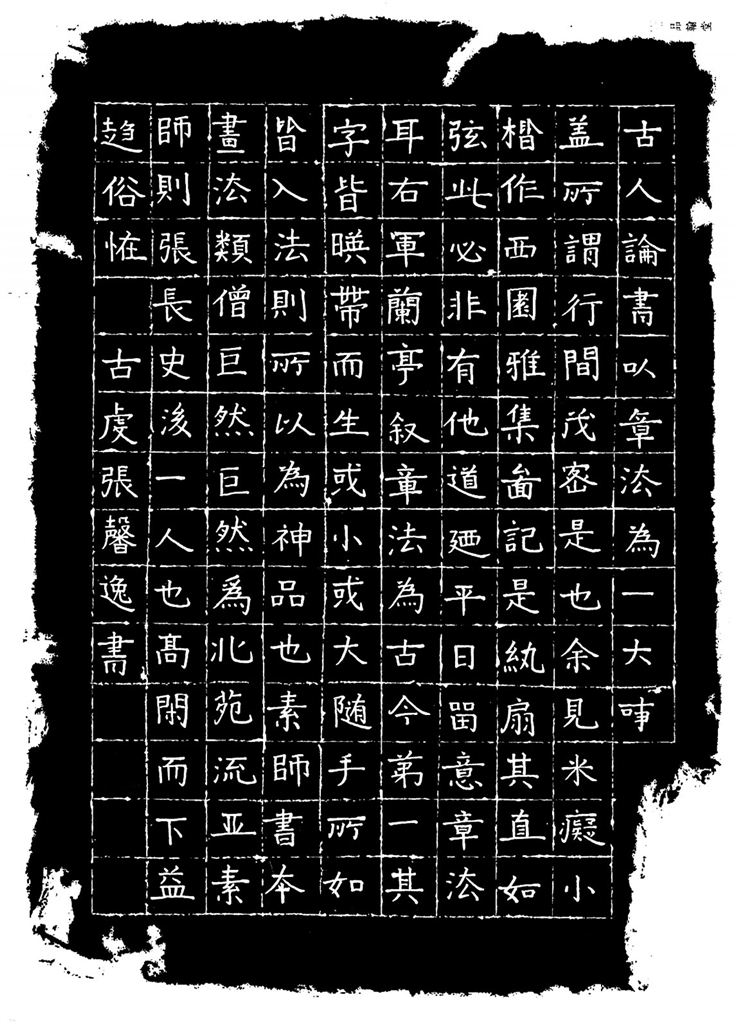 古人論書以章法為一大事
盖所謂行間茂密是也余見米癡小
楷作西園雅集啚記是紈扇其直如
弦此必非有他道廼平日留意章法
耳右軍蘭亭叙章法為古今第一其
字皆暎帶而生或小或大随手所如
皆入法則所以為神品也素師書本
畫法類僧巨然巨然為北苑流亚素
師則張長史後一人也高閑而下益
趋俗恠 古虔張馨逸書
品翰堂